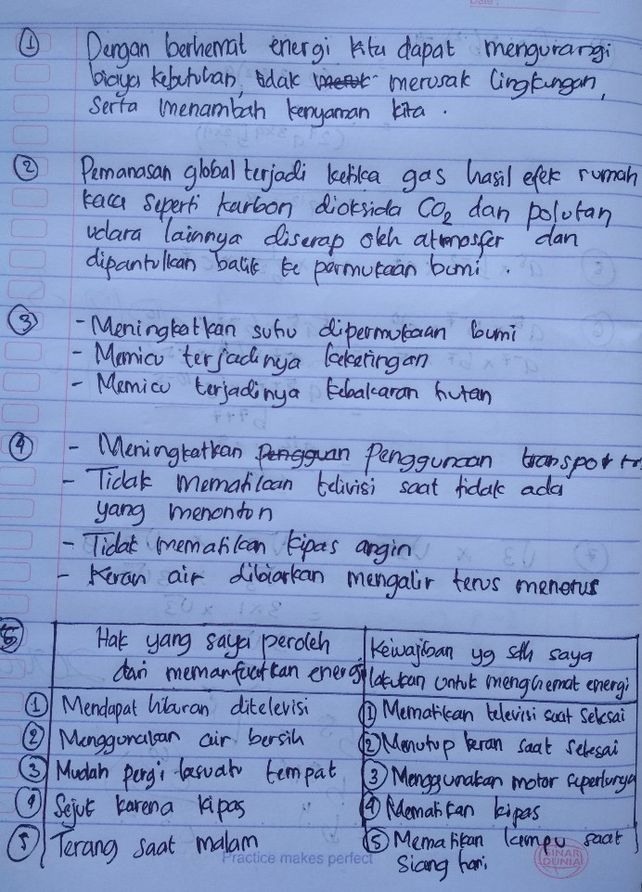 ① Dengan berhemat energi kita dapat mengurangi
biaya kebutuhan, tidak merusak lingkungan,
Serta menambah kenyaman kita.
② Pemanasan global terjadi ketika gas hasil efek rumah
kaca seperti karbon dioksida CO₂ dan polutan
udara lainnya diserap oleh atmosfer dan
dipantulkan balik ke permukaan bumi.
③ - Meningkatkan suhu dipermukaan bumi
- Memicu terjadinya kekeringan
- Memicu terjadinya kebakaran hutan
④ - Meningkatkan Penggunaan
- Tidak mematikan telivisi saat tidak ada
yang menonton
- Tidak mematikan kipas angin
- Keran air dibiarkan mengalir terus menerus
⑤ Hak yang saya peroleh
dari memanfaatkan energi
Kewajiban yg sdh saya
lakukan untuk menghemat energi
① Mendapat hiburan ditelevisi
① Mematikan televisi saat selesai
② Menggunakan air bersih
② Menutup keran saat selesai
③ Mudah pergi kesuatu tempat
③ Menggunakan motor seperlunya
④ Sejuk karena kipas
④ Mematikan kipas
⑤ Terang saat malam
⑤ Mematikan lampu saat
Siang hari
Practice makes perfect
SINAR
DUNIA